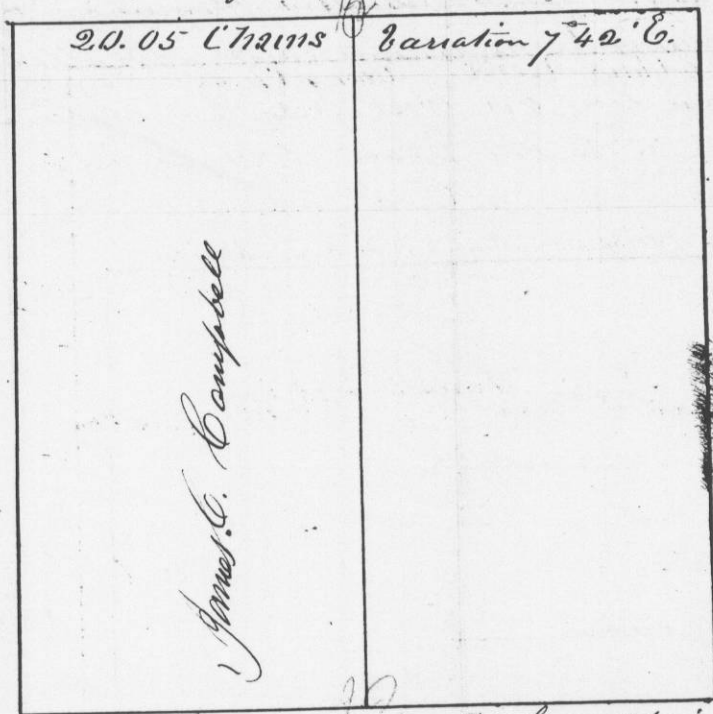 20.05 Chains
Variation 7° 42' E.
James. C. Campbell